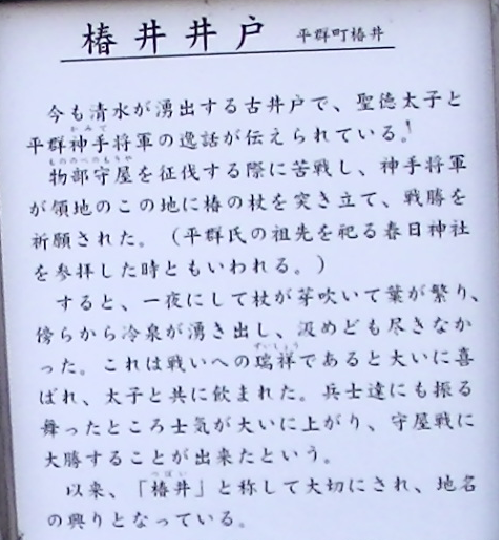 椿井井戸　平群町椿井
今も清水が湧出する古井戸で、聖徳太子と
かみて
平群神手将軍の逸話が伝えられている。
もののべのもりや
物部守屋を征伐する際に苦戦し、神手将軍
が領地のこの地に椿の杖を突き立て、戦勝を
祈願された。（平群氏の祖先を祀る春日神社
を参拝した時ともいわれる。）
すると、一夜にして杖が芽吹いて葉が繁り、
傍らから冷泉が湧き出し、汲めども尽きなか
ずいしょう
った。これは戦いへの瑞祥であると大いに喜
ばれ、太子と共に飲まれた。兵士達にも振る
舞ったところ士気が大いに上がり、守屋戦に
大勝することが出来たという。
つばい
以来、「椿井」と称して大切にされ、地名
の興りとなっている。